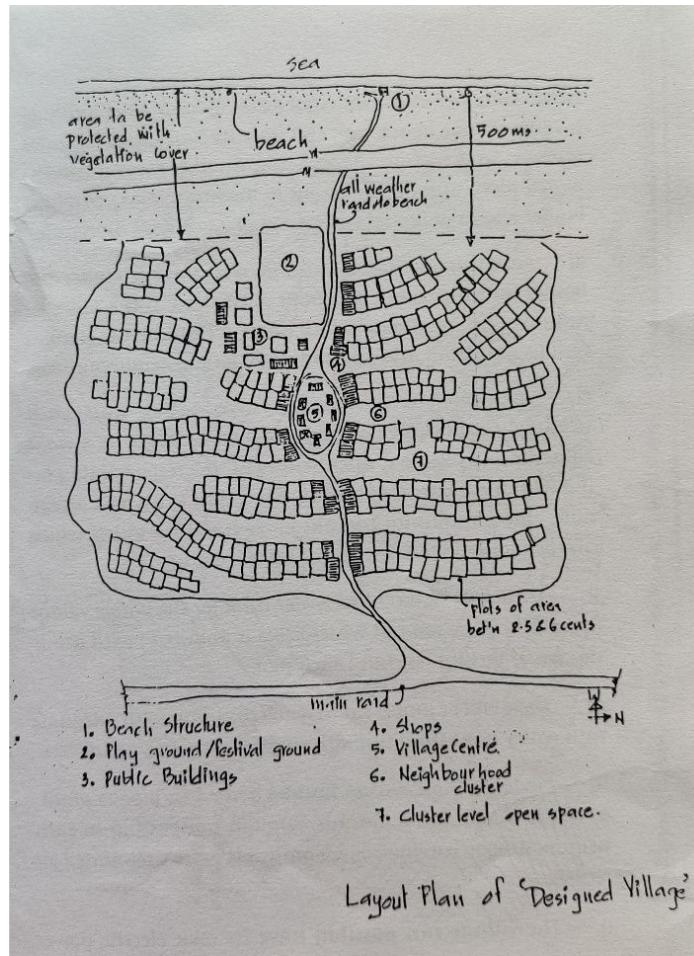 sea
①
area to be
protected with
vegetation cover
beach
500ms.
all weather
road to beach
②
③
④
⑤
⑥
⑦
plots of area
bet'n 2.5 & 6 cents
main road
N
1. Beach Structure
2. Play ground/festival ground
3. Public Buildings
4. Shops
5. Village Centre.
6. Neighbourhood
cluster
7. Cluster level open space.
Layout Plan of 'Designed Village'